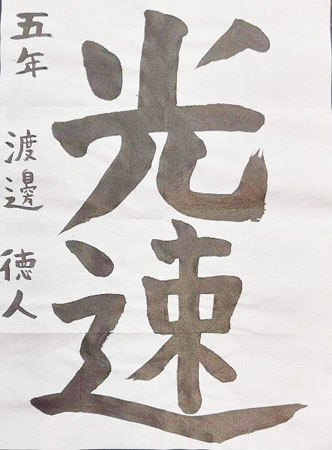 光速
五年 渡邊 徳人